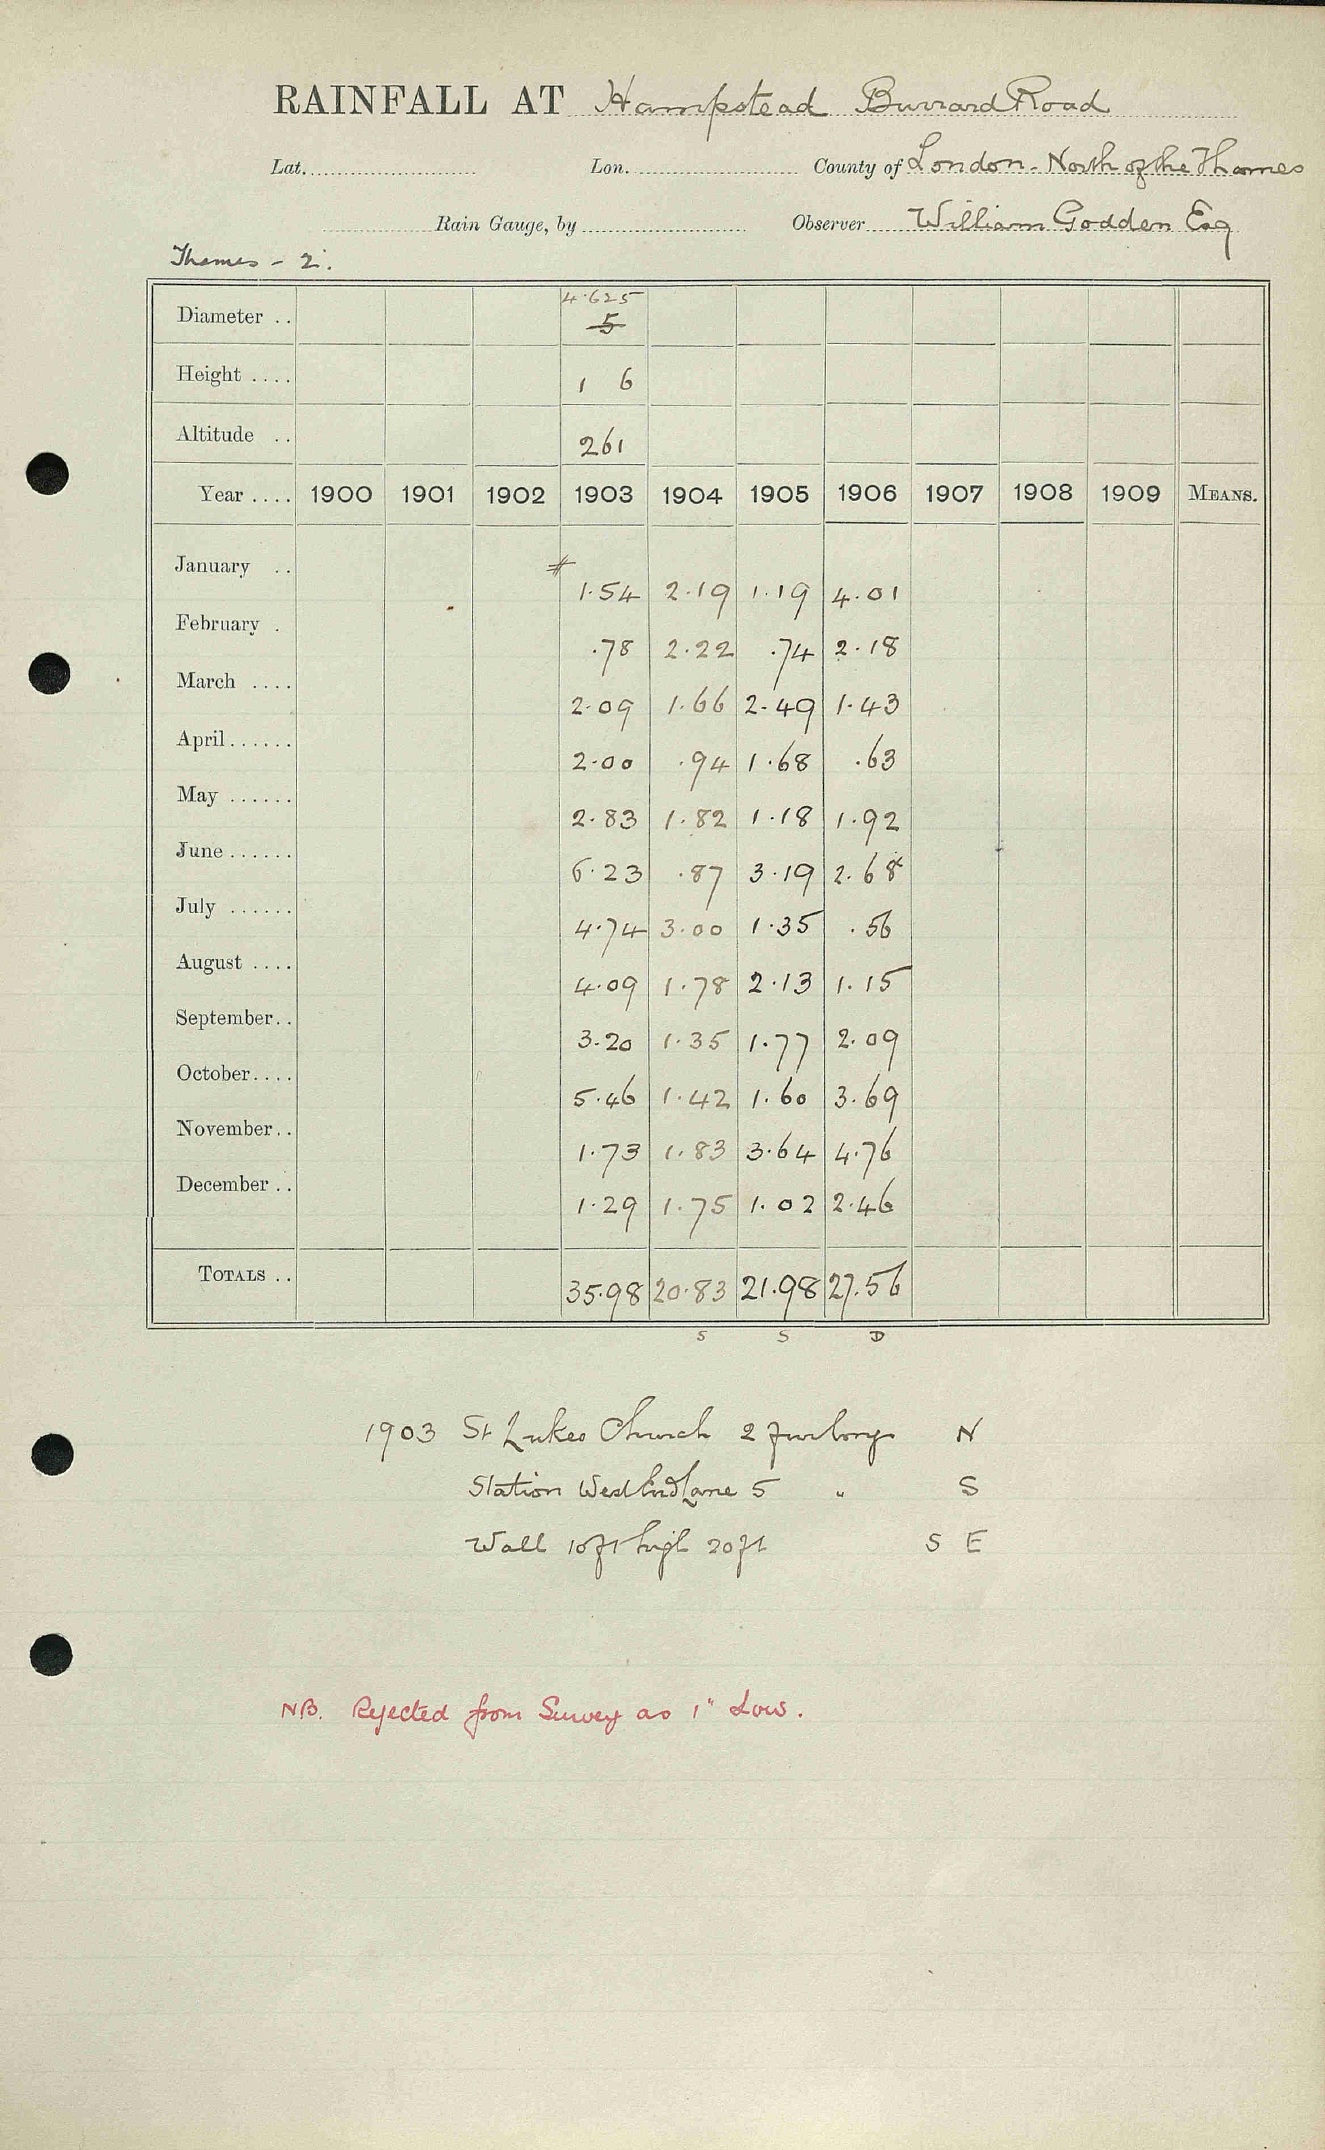 RAINFALL AT Hampstead Burrard Road
Lat. Lon. County of London - North of the Thames
Rain Gauge, by Observer William Godden Esq
Thames - 2.
4.625
Diameter .. 5
Height .... 1 6
Altitude .. 261
Year .... 1900 1901 1902 1903 1904 1905 1906 1907 1908 1909 MEANS.
January .. # 1.54 2.19 1.19 4.01
February . .78 2.22 .74 2.18
March .... 2.09 1.66 2.49 1.43
April...... 2.00 .94 1.68 .63
May ...... 2.83 1.82 1.18 1.92
June...... 6.23 .87 3.19 2.68
July ...... 4.74 3.00 1.35 .56
August .... 4.09 1.78 2.13 1.15
September.. 3.20 1.35 1.77 2.09
October.... 5.46 1.42 1.60 3.69
November.. 1.73 1.83 3.64 4.76
December .. 1.29 1.75 1.02 2.46
TOTALS .. 35.98 20.83 21.98 27.56
S S D
1903 St Lukes Church 2 furlongs N
Station West End Lane 5 " S
Wall 10ft high 20ft S E
NB. Rejected from Survey as 1" Low.